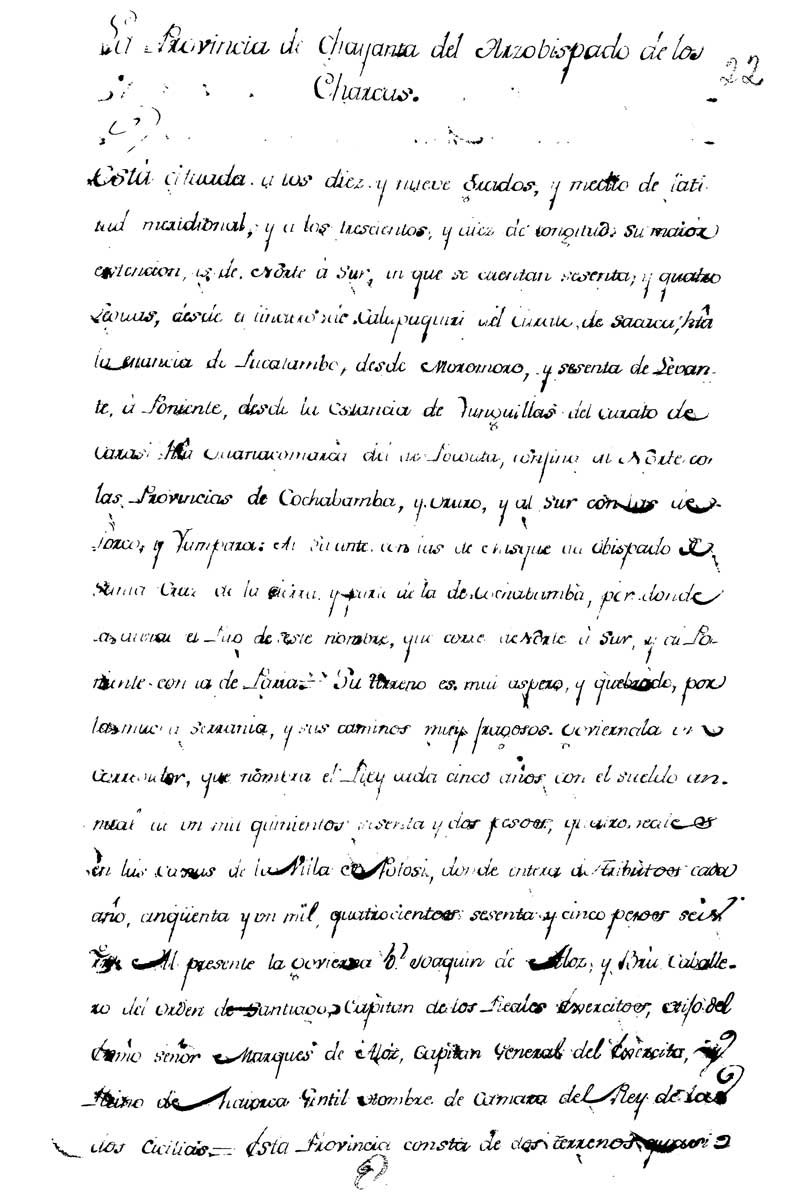 La Provincia de Chayanta del Arzobispado de los
Charcas.
22
Está cituada a los diez y nueve Grados, y medio de lati
tud meridional, y a los trescientos, y diez de longitud: su maior
extencion, es de Norte à Sur, en que se cuentan sesenta, y quatro
Leguas, desde el del Curato de Sacaca, hta
la estancia de Pucatambo, desde Moromoro, y sesenta de Levan-
te, à Poniente, desde la Estancia de Yunguillas del curato de
Carasi hta Guariacomarca del de Pocoata, confina al Norte con
las Provincias de Cochabamba, y Oruro, y al Sur con las de
Porco, y Yampara: Al Levante con las de Misque del Obispado de
Santa Cruz de la Sierra, y parte de la de Cochabamba, por donde
atraviesa el Rio de este nombre, que corre de Norte à Sur, y al Po-
niente con la de Paria = Su terreno es mui aspero, y quebrado, por
la mucha serrania, y sus caminos muy fragosos. Goviernala un
Corregidor, que nombra el Rey cada cinco años, con el sueldo an-
nual de un mil quinientos sesenta y dos pesos, quatro reales
en las Caxas de la Villa de Potosi, donde entera de tributos cada
año, cinqüenta y un mil, quatrocientos sesenta y cinco pesos seis
Al presente la govierna Dn. Joaquin de Aloz, y Brú Caballe-
ro del orden de Santiago, Capitan de los Reales Exercitos, hijo del
Exmo señor Marques de Aloz, Capitan General del Exercito, y
Reino de Maiorca Gentil Hombre de Camara del Rey de las
dos Cicilias = Esta Provincia consta de dos terrenos, quasi